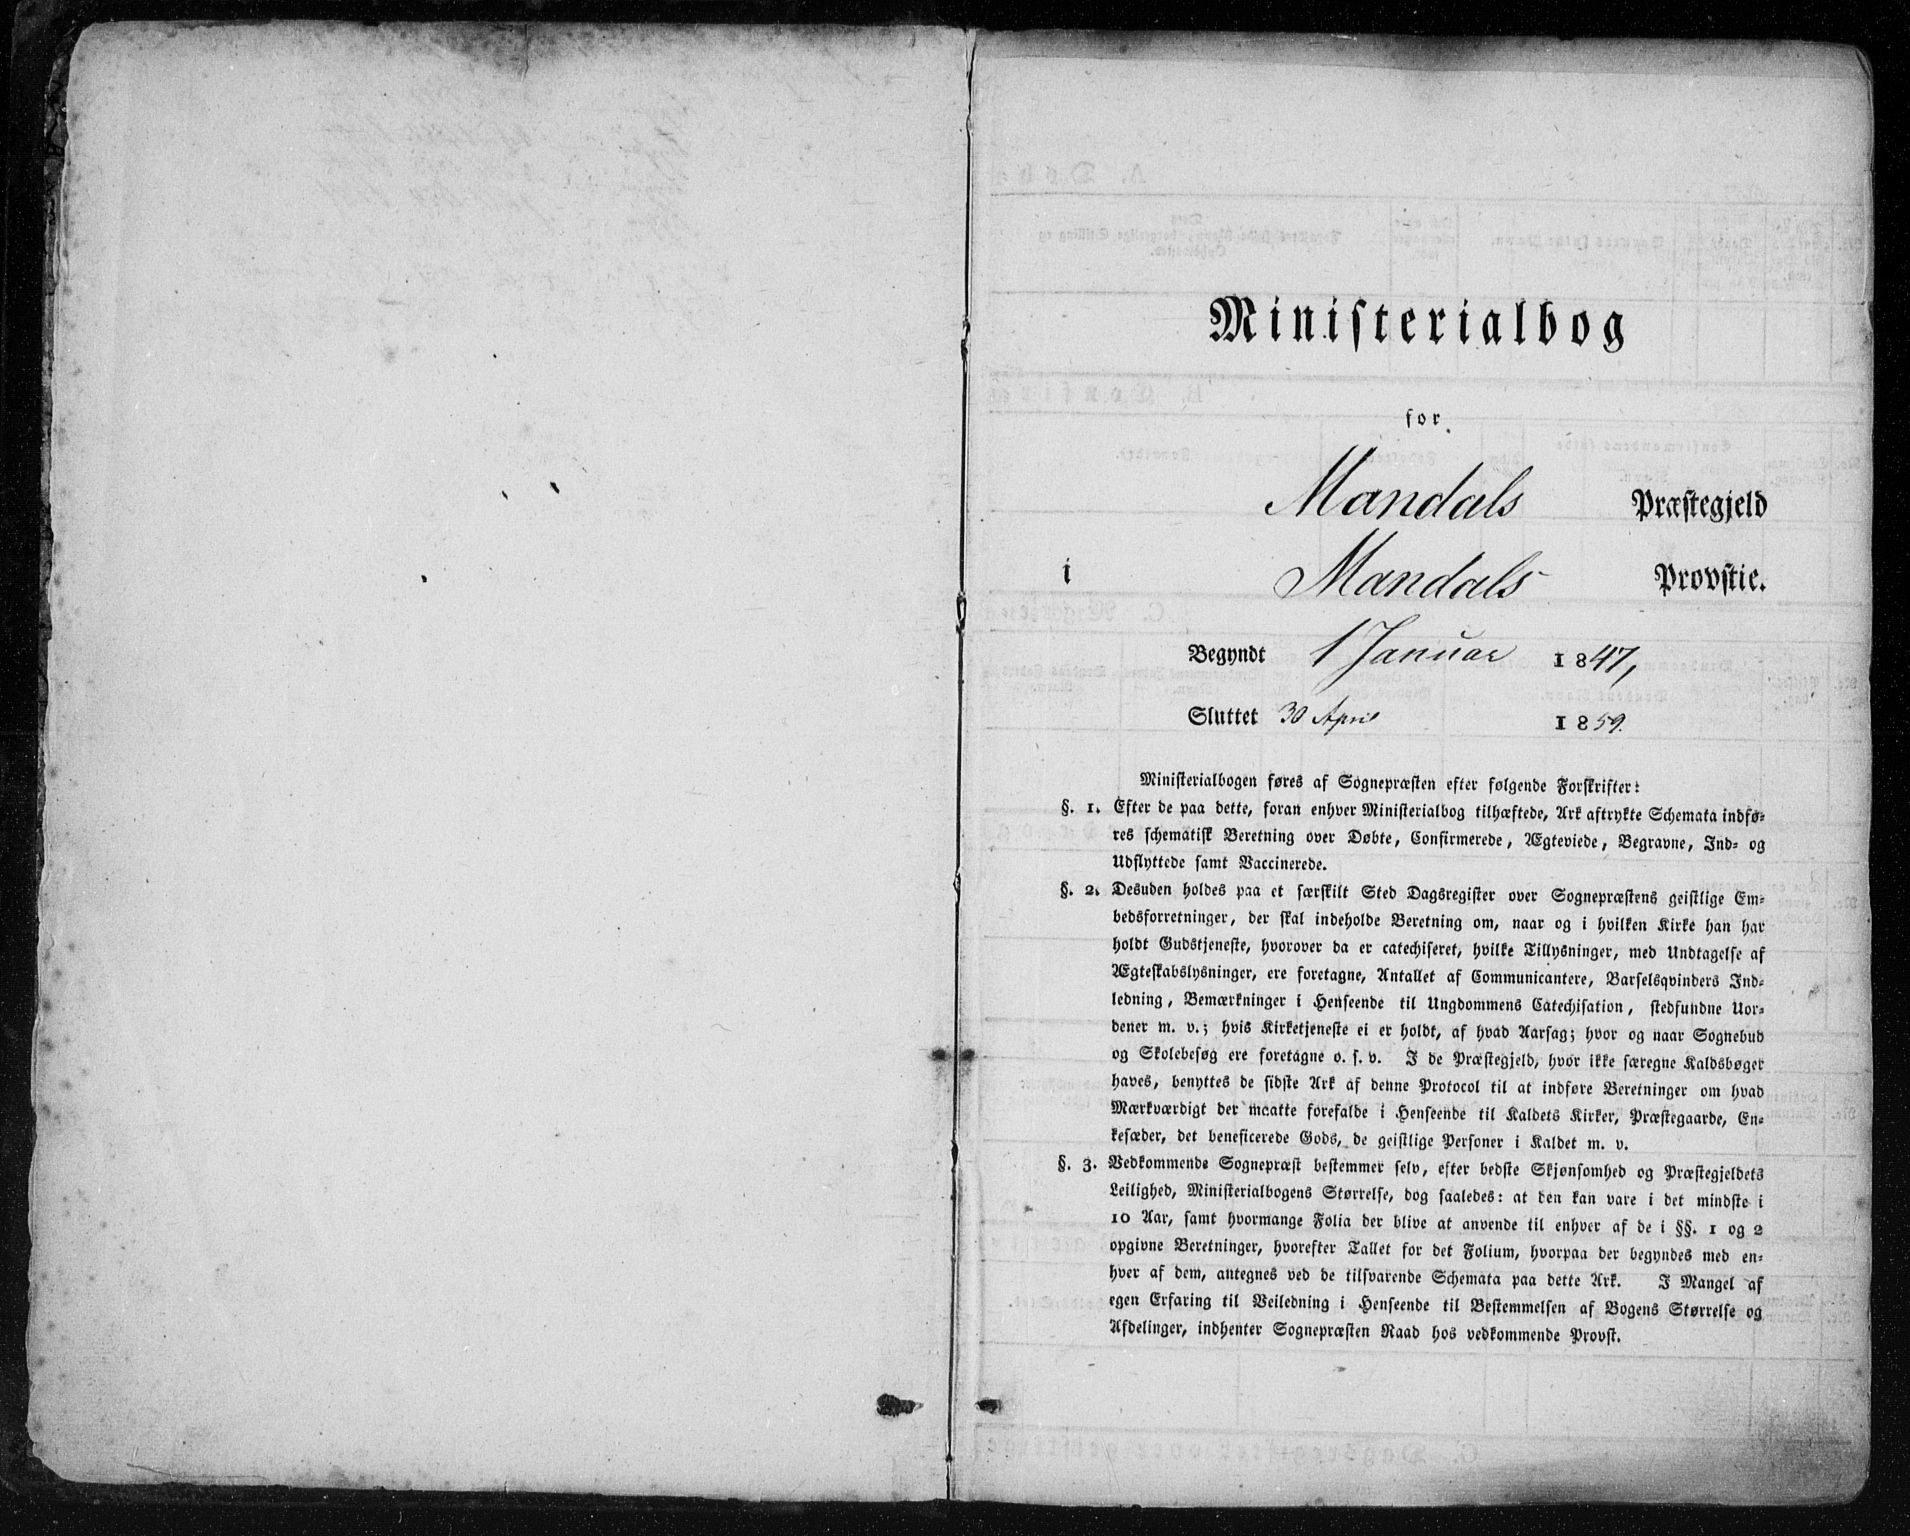 Ministerialbog
for
Mandals Præstegjeld
i Mandals Provstie.
Begyndt 1 Januar 1847,
Sluttet 30 April 1859.
Ministerialbogen føres af Sognepræsten efter følgende Forskrifter:
§. 1. Efter de paa dette, foran enhver Ministerialbog tilhæftede, Ark aftrykte Schemata indfø-
res schematisk Beretning over Døbte, Confirmerede, Ægteviede, Begravne, Ind- og
Udflyttede samt Vaccinerede.
§. 2. Desuden holdes paa et særskilt Sted Dagsregister over Sognepræstens geistlige Em-
bedsforretninger, der skal indeholde Beretning om, naar og i hvilken Kirke han har
holdt Gudstjeneste, hvorover da er catechiseret, hvilke Tillysninger, med Undtagelse af
Ægteskabslysninger, ere foretagne, Antallet af Communicantere, Barselsqvinders Ind-
ledning, Bemærkninger i Henseende til Ungdommens Catechisation, stedfundne Uor-
dener m. v.; hvis Kirketjeneste ei er holdt, af hvad Aarsag; hvor og naar Sognebud
og Skolebesøg ere foretagne o. s. v. I de Præstegjeld, hvor ikke særegne Kaldsbøger
haves, benyttes de sidste Ark af denne Protocol til at indføre Beretninger om hvad
Mærkværdigt der maatte forefalde i Henseende til Kaldets Kirker, Præstegaarde, En-
kesæder, det beneficerede Gods, de geistlige Personer i Kaldet m. v.
§. 3. Vedkommende Sognepræst bestemmer selv, efter bedste Skjønsomhed og Præstegjeldets
Leilighed, Ministerialbogens Størrelse, dog saaledes: at den kan vare i det mindste i
10 Aar, samt hvormange Folia der blive at anvende til enhver af de i §§. 1 og 2
opgivne Beretninger, hvorefter Tallet for det Folium, hvorpaa der begyndes med en-
hver af dem, antegnes ved de tilsvarende Schemata paa dette Ark. I Mangel af
egen Erfaring til Veiledning i Henseende til Bestemmelsen af Bogens Størrelse og
Afdelinger, indhenter Sognepræsten Raad hos vedkommende Provst.